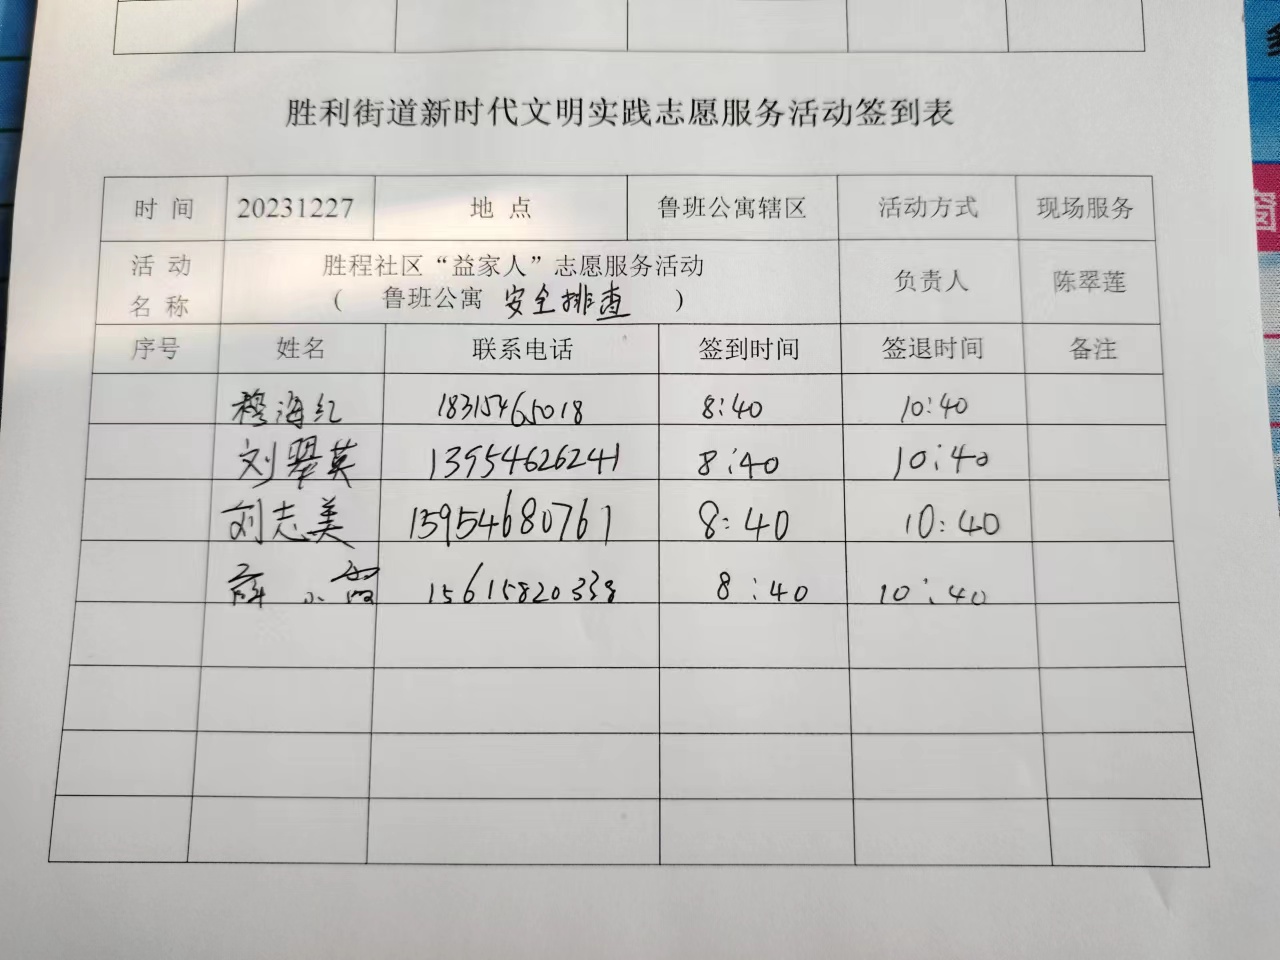 胜利街道新时代文明实践志愿服务活动签到表
时 间 20231227 地 点 鲁班公寓辖区 活动方式 现场服务
活 动 名 称 胜程社区“益家人”志愿服务活动
( 鲁班公寓 安全排查 ) 负责人 陈翠莲
序号 姓名 联系电话 签到时间 签退时间 备注
穆海红 18315465018 8:40 10:40
刘翠英 13954626241 8:40 10:40
刘志美 15954680761 8:40 10:40
薛小霞 15615820338 8:40 10:40